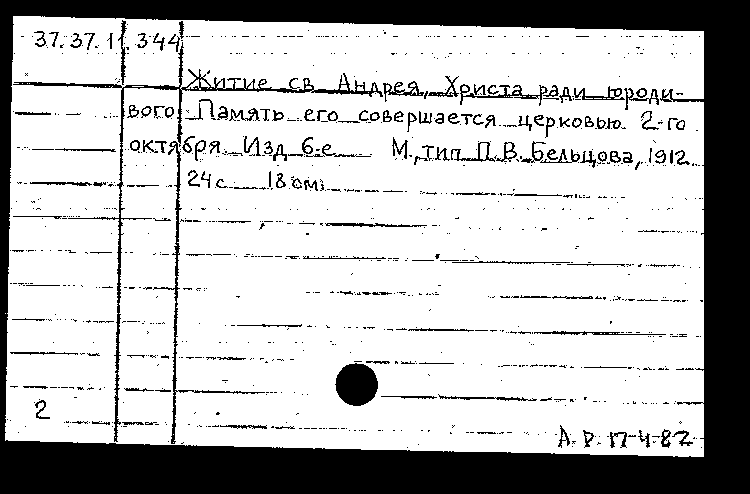 37.37.11.344
Житие св. Андрея, Христа ради юроди-
вого. Память его совершается церковью 2-го
октября. Изд. 6-е М., тип. П.В. Бельцова, 1912.
24 с. 18 см.
2
А.Р. 17-4-82